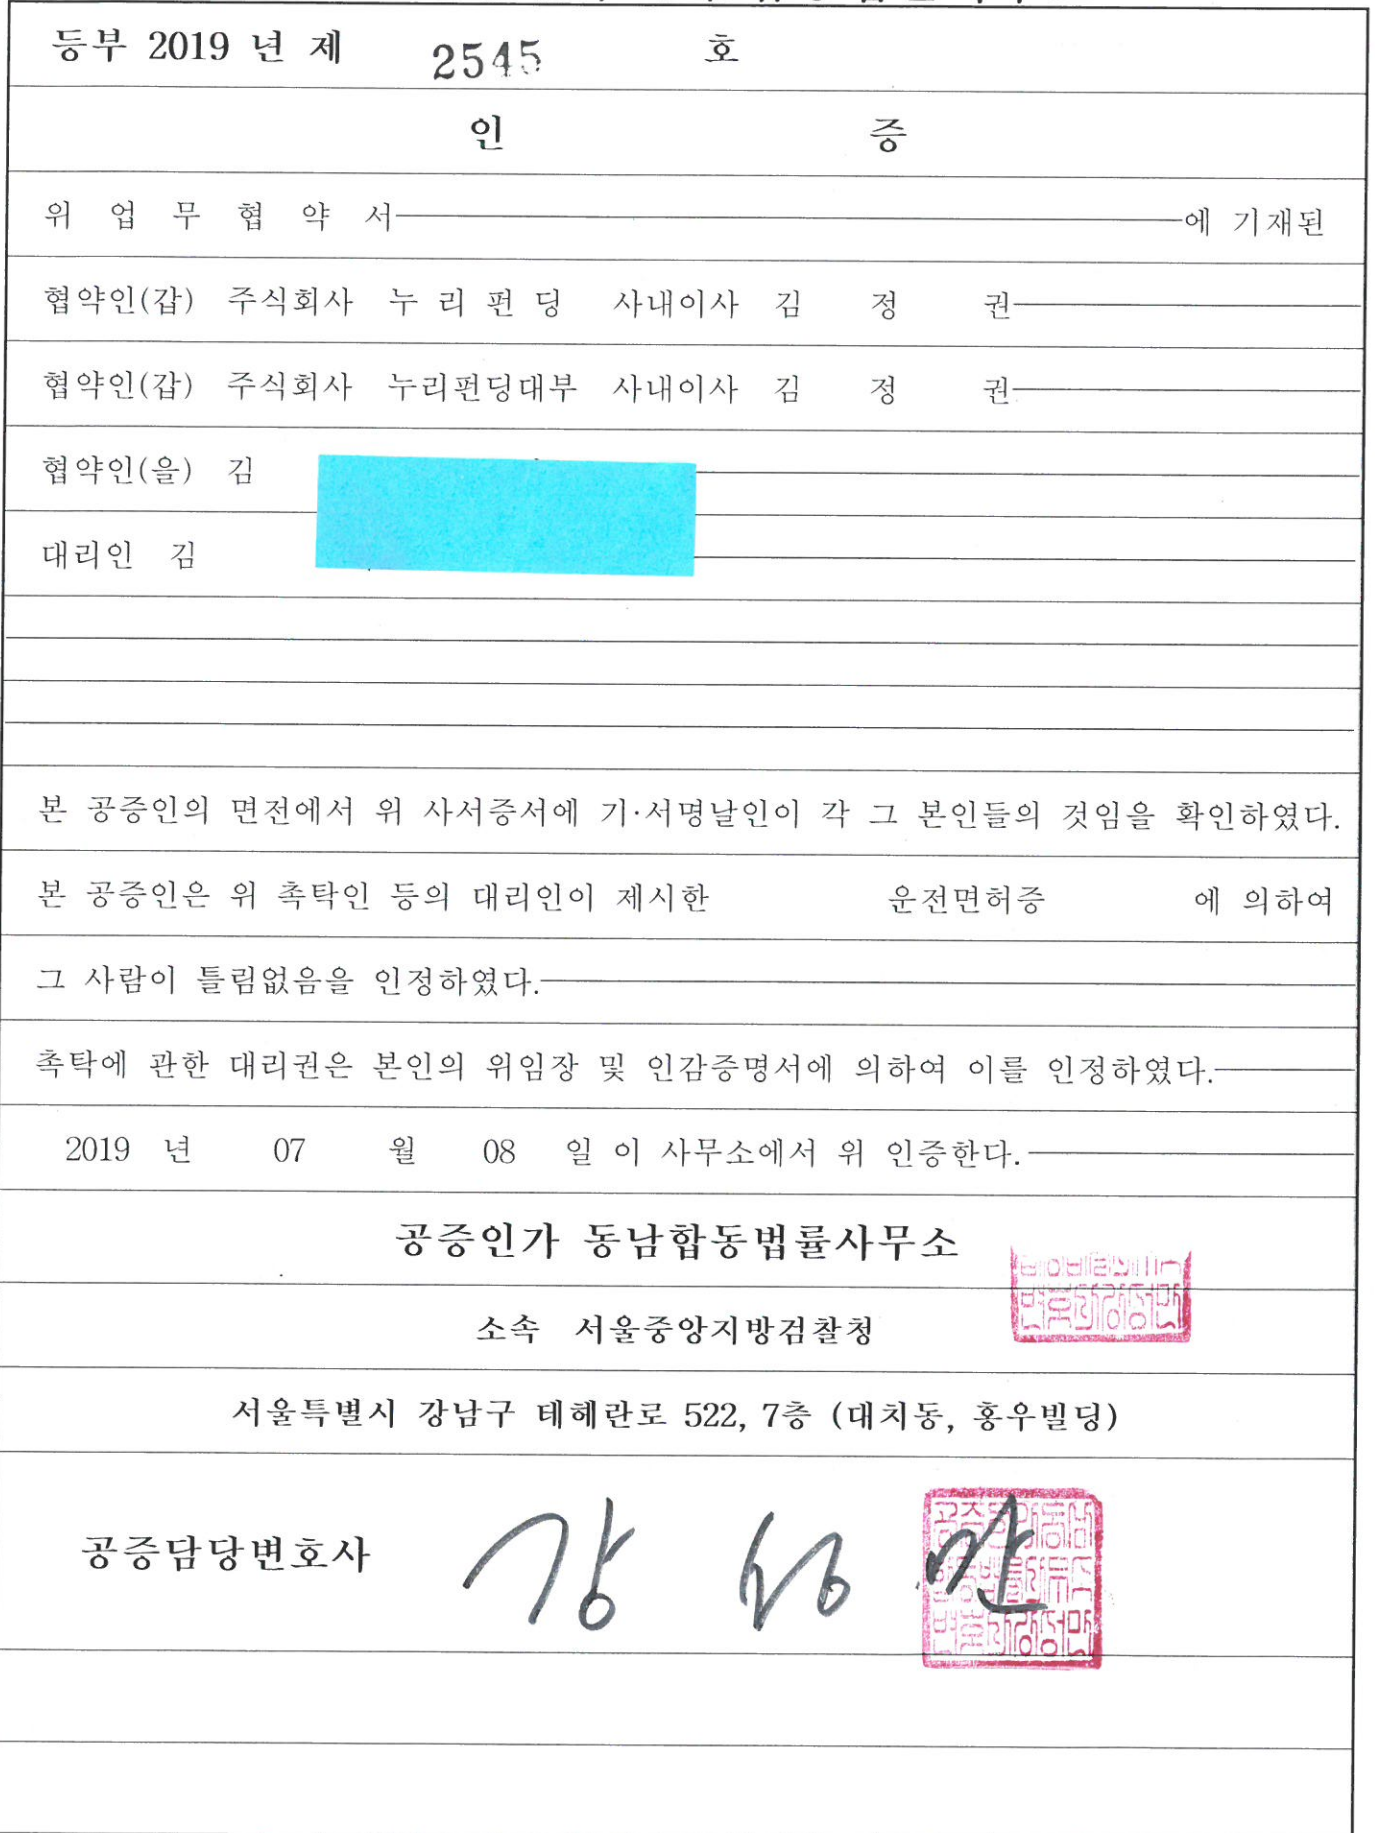 등부 2019 년 제 2545 호
인 증
위 업 무 협 약 서 에 기재된
협약인(갑) 주식회사 누 리 펀 딩 사내이사 김 정 권
협약인(갑) 주식회사 누리펀딩대부 사내이사 김 정 권
협약인(을) 김
대리인 김
본 공증인의 면전에서 위 사서증서에 기·서명날인이 각 그 본인들의 것임을 확인하였다.
본 공증인은 위 촉탁인 등의 대리인이 제시한 운전면허증 에 의하여
그 사람이 틀림없음을 인정하였다.
촉탁에 관한 대리권은 본인의 위임장 및 인감증명서에 의하여 이를 인정하였다.
2019 년 07 월 08 일 이 사무소에서 위 인증한다.
공증인가 동남합동법률사무소
소속 서울중앙지방검찰청
서울특별시 강남구 테헤란로 522, 7층 (대치동, 홍우빌딩)
공증담당변호사 강 성 만